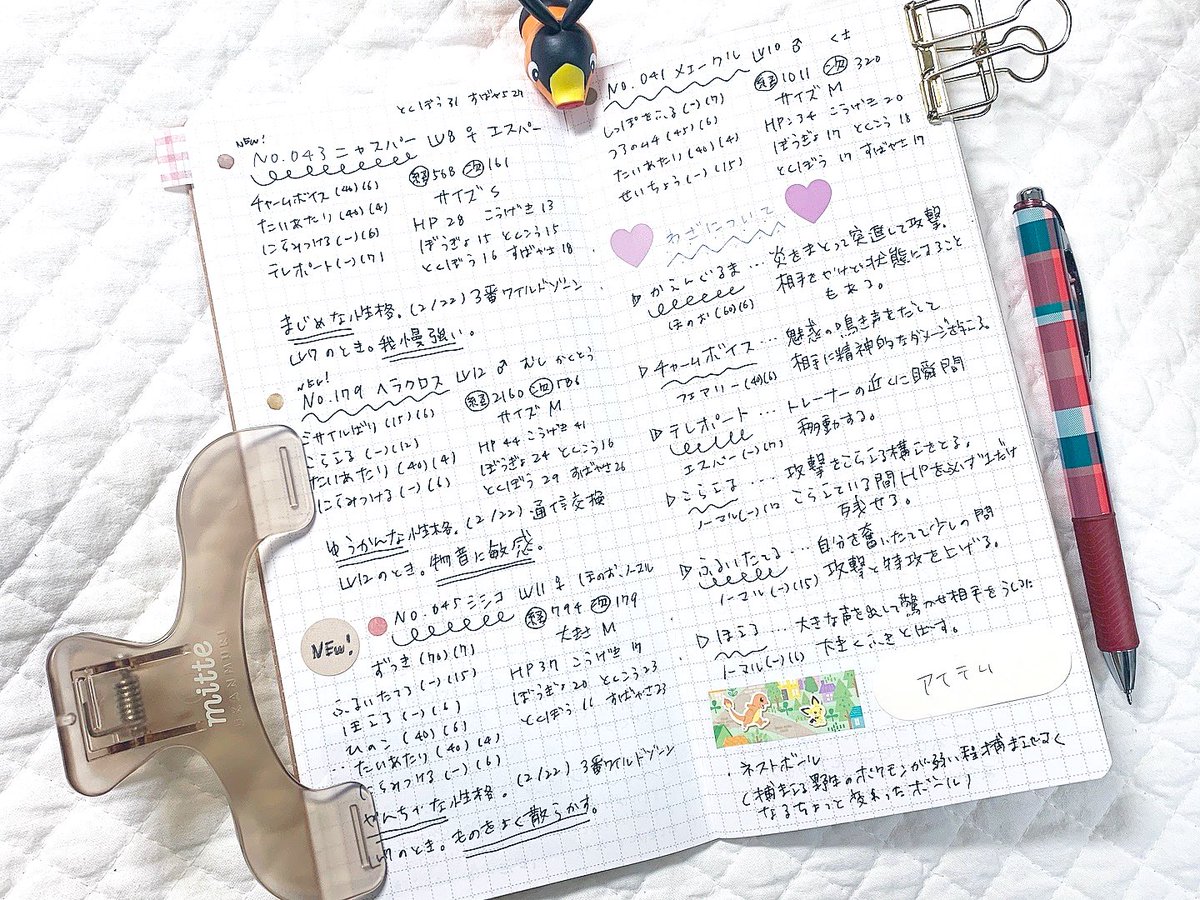 とくぼう31 すばやさ27
NEW!
No.043 ニャスパー LV8 ♀ エスパー
チャームボイス(40)(6)
たいあたり(40)(4)
にらみつける(-)(6)
テレポート(-)(7)
経568 次161
サイズ S
HP 28 こうげき 13
ぼうぎょ 15 とくこう 15
とくぼう 16 すばやさ 18
まじめな性格。(2/22) 3番ワイルドゾーン
LV7のとき。我慢強い。
NEW!
No.179 ヘラクロス LV12 ♂ むし かくとう
ミサイルばり(15)(6)
こらえる(-)(12)
たいあたり(40)(4)
にらみつける(-)(6)
経2160 次786
サイズ M
HP 44 こうげき 41
ぼうぎょ 24 とくこう 16
とくぼう 29 すばやさ 26
ゆうかんな性格。(2/22) 通信交換
LV12のとき。物音に敏感。
NEW!
No.045 シシコ LV11 ♀ ほのお、ノーマル
ずつき(70)(7)
ふるいたてる(-)(15)
ほえる(-)(6)
ひのこ(40)(6)
たいあたり(40)(4)
にらみつける(-)(6)
経794 次179
大きさ M
HP 37 こうげき 17
ぼうぎょ 20 とくこう 23
とくぼう 16 すばやさ 23
やんちゃな性格。(2/22) 3番ワイルドゾーン
LV7のとき。ものをよく散らかす。
mitte
URANMUKI
No.041 メェークル LV10 ♂ くさ
しっぽをふる(-)(7)
つるのムチ(45)(6)
たいあたり(40)(4)
せいちょう(-)(15)
経1011 次320
サイズ M
HP:34 こうげき 20
ぼうぎょ 17 とくこう 18
とくぼう 17 すばやさ 17
わざについて
▷かえんぐるま…炎をまとって突進して攻撃。
相手をやけど状態にすること
もある。
ほのお(60)(6)
▷チャームボイス…魅惑の鳴き声をだして
相手に精神的なダメージを与える。
フェアリー(40)(6)
▷テレポート…トレーナーの近くに瞬間
移動する。
エスパー(-)(7)
▷こらえる…攻撃をこらえる構えをとる。
こらえている間HPを必ず1だけ
残せる。
ノーマル(-)(12)
▷ふるいたてる…自分を奮いたてて少しの間
攻撃と特攻を上げる。
ノーマル(-)(15)
▷ほえる…大きな声を出して驚かせ相手をうしろに
大きくふきとばす。
ノーマル(-)(6)
アイテム
・ネストボール
(捕まえる野生のポケモンが弱い程捕まえやすく
なるちょっと変わったボール)